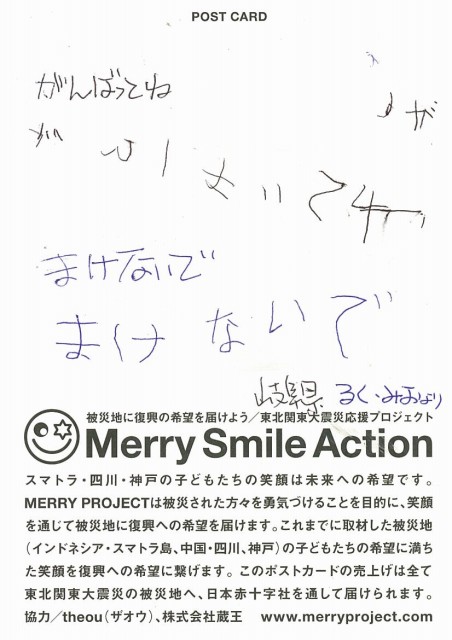 POST CARD
がんばってね
まけないで
まけないで
岐阜県 るく・みおより
被災地に復興の希望を届けよう／東北関東大震災応援プロジェクト
Merry Smile Action
スマトラ・四川・神戸の子どもたちの笑顔は未来への希望です。
MERRY PROJECTは被災された方々を勇気づけることを目的に、笑顔
を通じて被災地に復興への希望を届けます。これまでに取材した被災地
（インドネシア・スマトラ島、中国・四川、神戸）の子どもたちの希望に満ち
た笑顔を復興への希望に繋げます。このポストカードの売上げは全て
東北関東大震災の被災地へ、日本赤十字社を通して届けられます。
協力／theou（ザオウ）、株式会社蔵王 www.merryproject.com